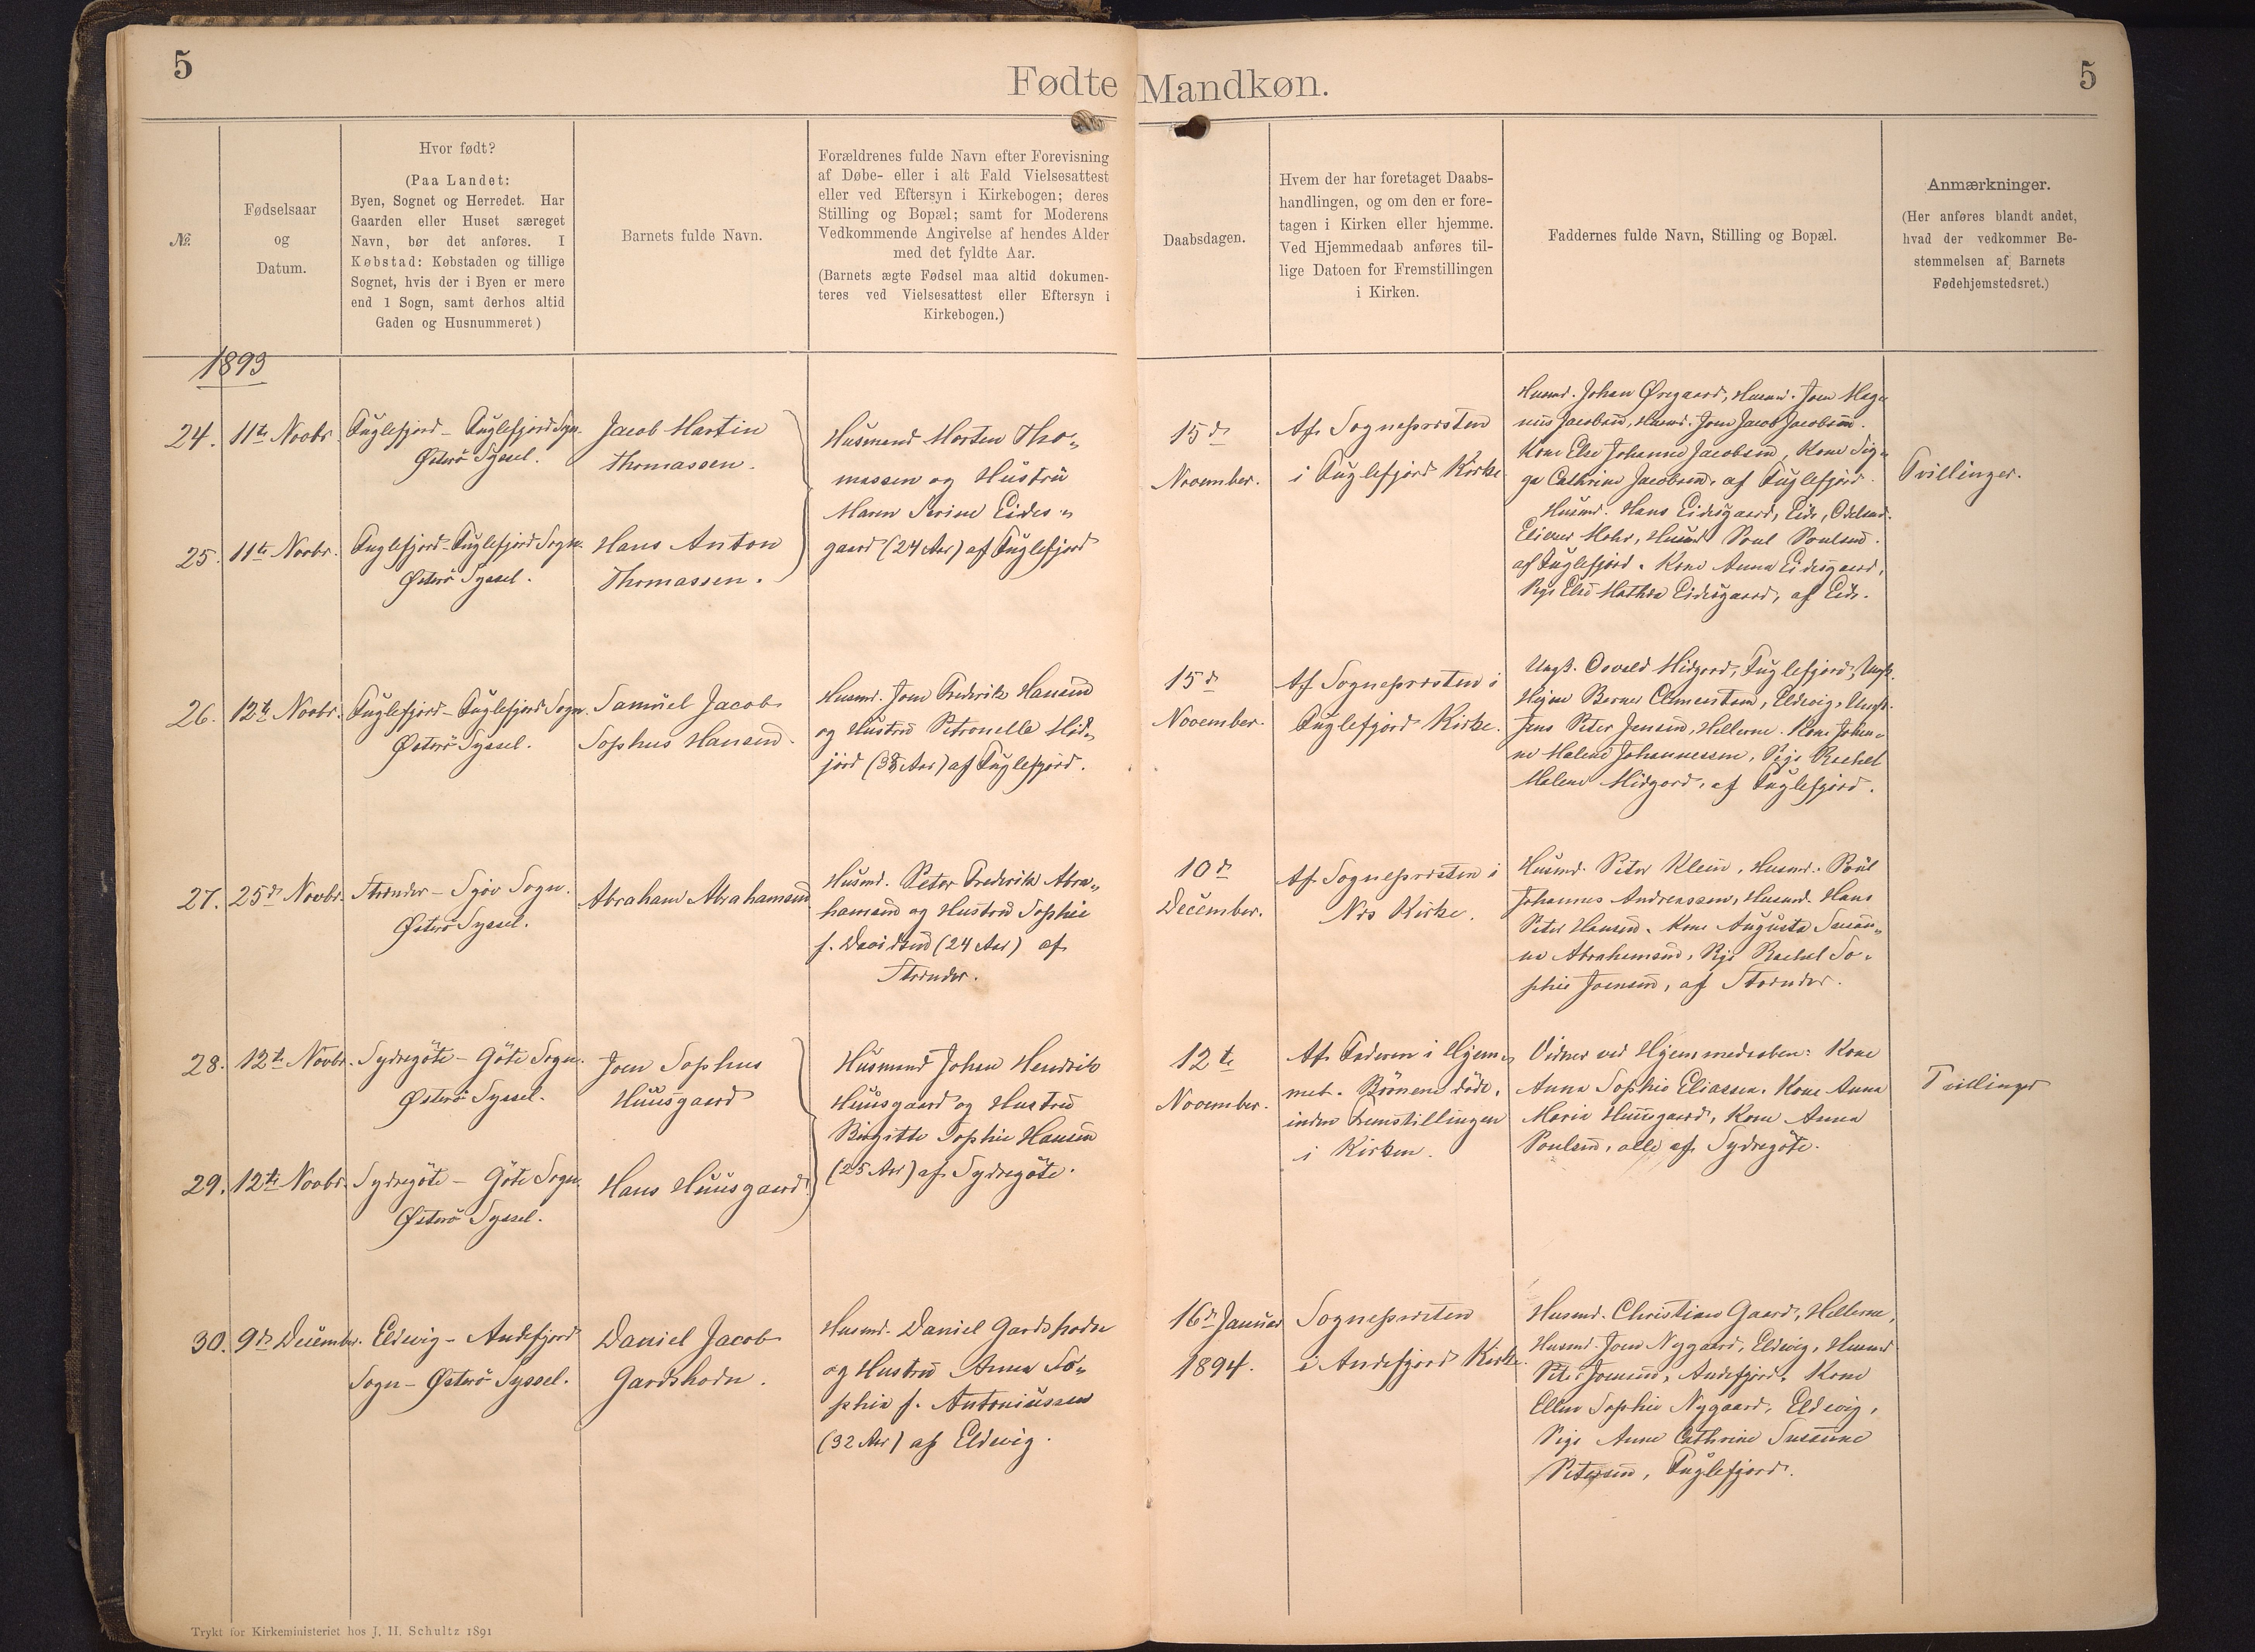 5
Fødte Mandkøn.
5
№
Fødselsaar
og
Datum.
Hvor født?
(Paa Landet:
Byen, Sognet og Herredet. Har
Gaarden eller Huset særeget
Navn, bør det anføres. I
Købstad: Købstaden og tillige
Sognet, hvis der i Byen er mere
end 1 Sogn, samt derhos altid
Gaden og Husnummeret)
Barnets fulde Navn.
Forældrenes fulde Navn efter Forevisning
af Døbe- eller i alt Fald Vielsesattest
eller ved Eftersyn i Kirkebogen; deres
Stilling og Bopæl; samt for Moderens
Vedkommende Angivelse af hendes Alder
med det fyldte Aar.
(Barnets ægte Fødsel maa altid dokumen-
teres ved Vielsesattest eller Eftersyn i
Kirkebogen.)
Daabsdagen.
Hvem der har foretaget Daabs-
handlingen, og om den er fore-
tagen i Kirken eller hjemme.
Ved Hjemmedaab anføres til-
lige Datoen for Fremstillingen
i Kirken.
Faddernes fulde Navn, Stilling og Bopæl.
Anmærkninger.
(Her anføres blandt andet,
hvad der vedkommer Be-
stemmelsen af Barnets
Fødehjemstedsret.)
1893
24.
11te Novbr.
Fuglefjord - Fuglefjord Sogn.
Østerö Syssel.
Jacob Martin
Thomassen.
Husmand Morten Tho-
massen og Hustru
Maren Serine Eides-
gaard (24 Aar) af Fuglefjord
15d
November.
Af Sognepræsten
i Fuglefjord Kirke
Husmd. Johan Øregaard, Husmd. Joen Mag-
nus Jacobsen, Husmd. Joen Jacob Jacobsen.
Kone Else Johanne Jacobsen, Kone Sig-
ga Cathrine Jacobsen, af Fuglefjord.
Husmd. Hans Eidesgaard, Eide, Odelsmd.
Elieser Mohr, Husmd Poul Poulsen.
af Fuglefjord. Kone Anna Eidesgaard,
Pige Else Mathea Eidesgaard, af Eide.
Tvillinger.
25.
11te Novbr.
Fuglefjord - Fuglefjord Sogn.
Østerö Syssel.
Hans Anton
Thomassen.
26.
12te Novbr.
Fuglefjord - Fuglefjord Sogn.
Østerö Syssel.
Samuel Jacob
Sophus Hansen.
Husmd. Joen Frederik Hansen
og Hustru Petronelle Mid-
jord (38 Aar) af Fuglefjord.
15d
November.
Af Sognepræsten i
Fuglefjord Kirke.
Ungk. Osvald Midgord, Fuglefjord, Ungk.
Clementsen, Eldevig, Ungk.
Jens Peter Jensen, Hellerne. Kone Johan-
ne Malene Johannessen, Pige Rachel
Malene Midgord, af Fuglefjord.
27.
25d Novbr.
Strænder - Sjov Sogn.
Østerö Syssel.
Abraham Abrahamsen
Husmd. Peter Frederik Abra-
hamsen og Hustru Sophie
f. Davidsen (24 Aar) af
Strænder.
10d
December.
Af Sognepræsten i
Næs Kirke.
Husmd. Peter Klein, Husmd. Poul
Johannes Andreassen, Husmd. Hans
Peter Hansen. Kone Augusta Susan-
ne Abrahamsen, Pige Rachel So-
phie Joensen, af Strænder.
28.
12te Novbr.
Sydregöte - Göte Sogn.
Østerö Syssel.
Joen Sophus
Huusgaard
Husmand Johan Hendrik
Huusgaard og Hustru
Birgitte Sophie Hansen
(25 Aar) af Sydregöte.
12te
November.
Af Faderen i Hjem-
met. Börnene døde,
inden Fremstillingen
i Kirken.
Vidner ved Hjemmedaaben: Kone
Anna Sophie Eliasen. Kone Anna
Marie Huusgaard, Kone Anna
Poulsen, alle af Sydregöte.
Tvillinger
29.
12te Novbr.
Sydregöte - Göte Sogn.
Østerö Syssel.
Hans Huusgaard
30.
9de December.
Eldevig - Andefjord
Sogn - Østerö Syssel.
Daniel Jacob
Gardshodn.
Husmd. Daniel Gardshodn
og Hustru Anna So-
phie f. Antoniussen
(32 Aar) af Eldevig.
16d Januar
1894.
Sognepræsten
i Andefjord Kirke.
Husmd. Christian Gaard, Hellerne,
Husmd. Joen Nygaard, Eldevig, Husmd
Peter Joensen, Andefjord. Kone
Ellen Sophie Nygaard, Eldevig,
Pige Anne Cathrine Susanne
Petersen, Fuglefjord.
Trykt for Kirkeministeriet hos J. H. Schultz 1891